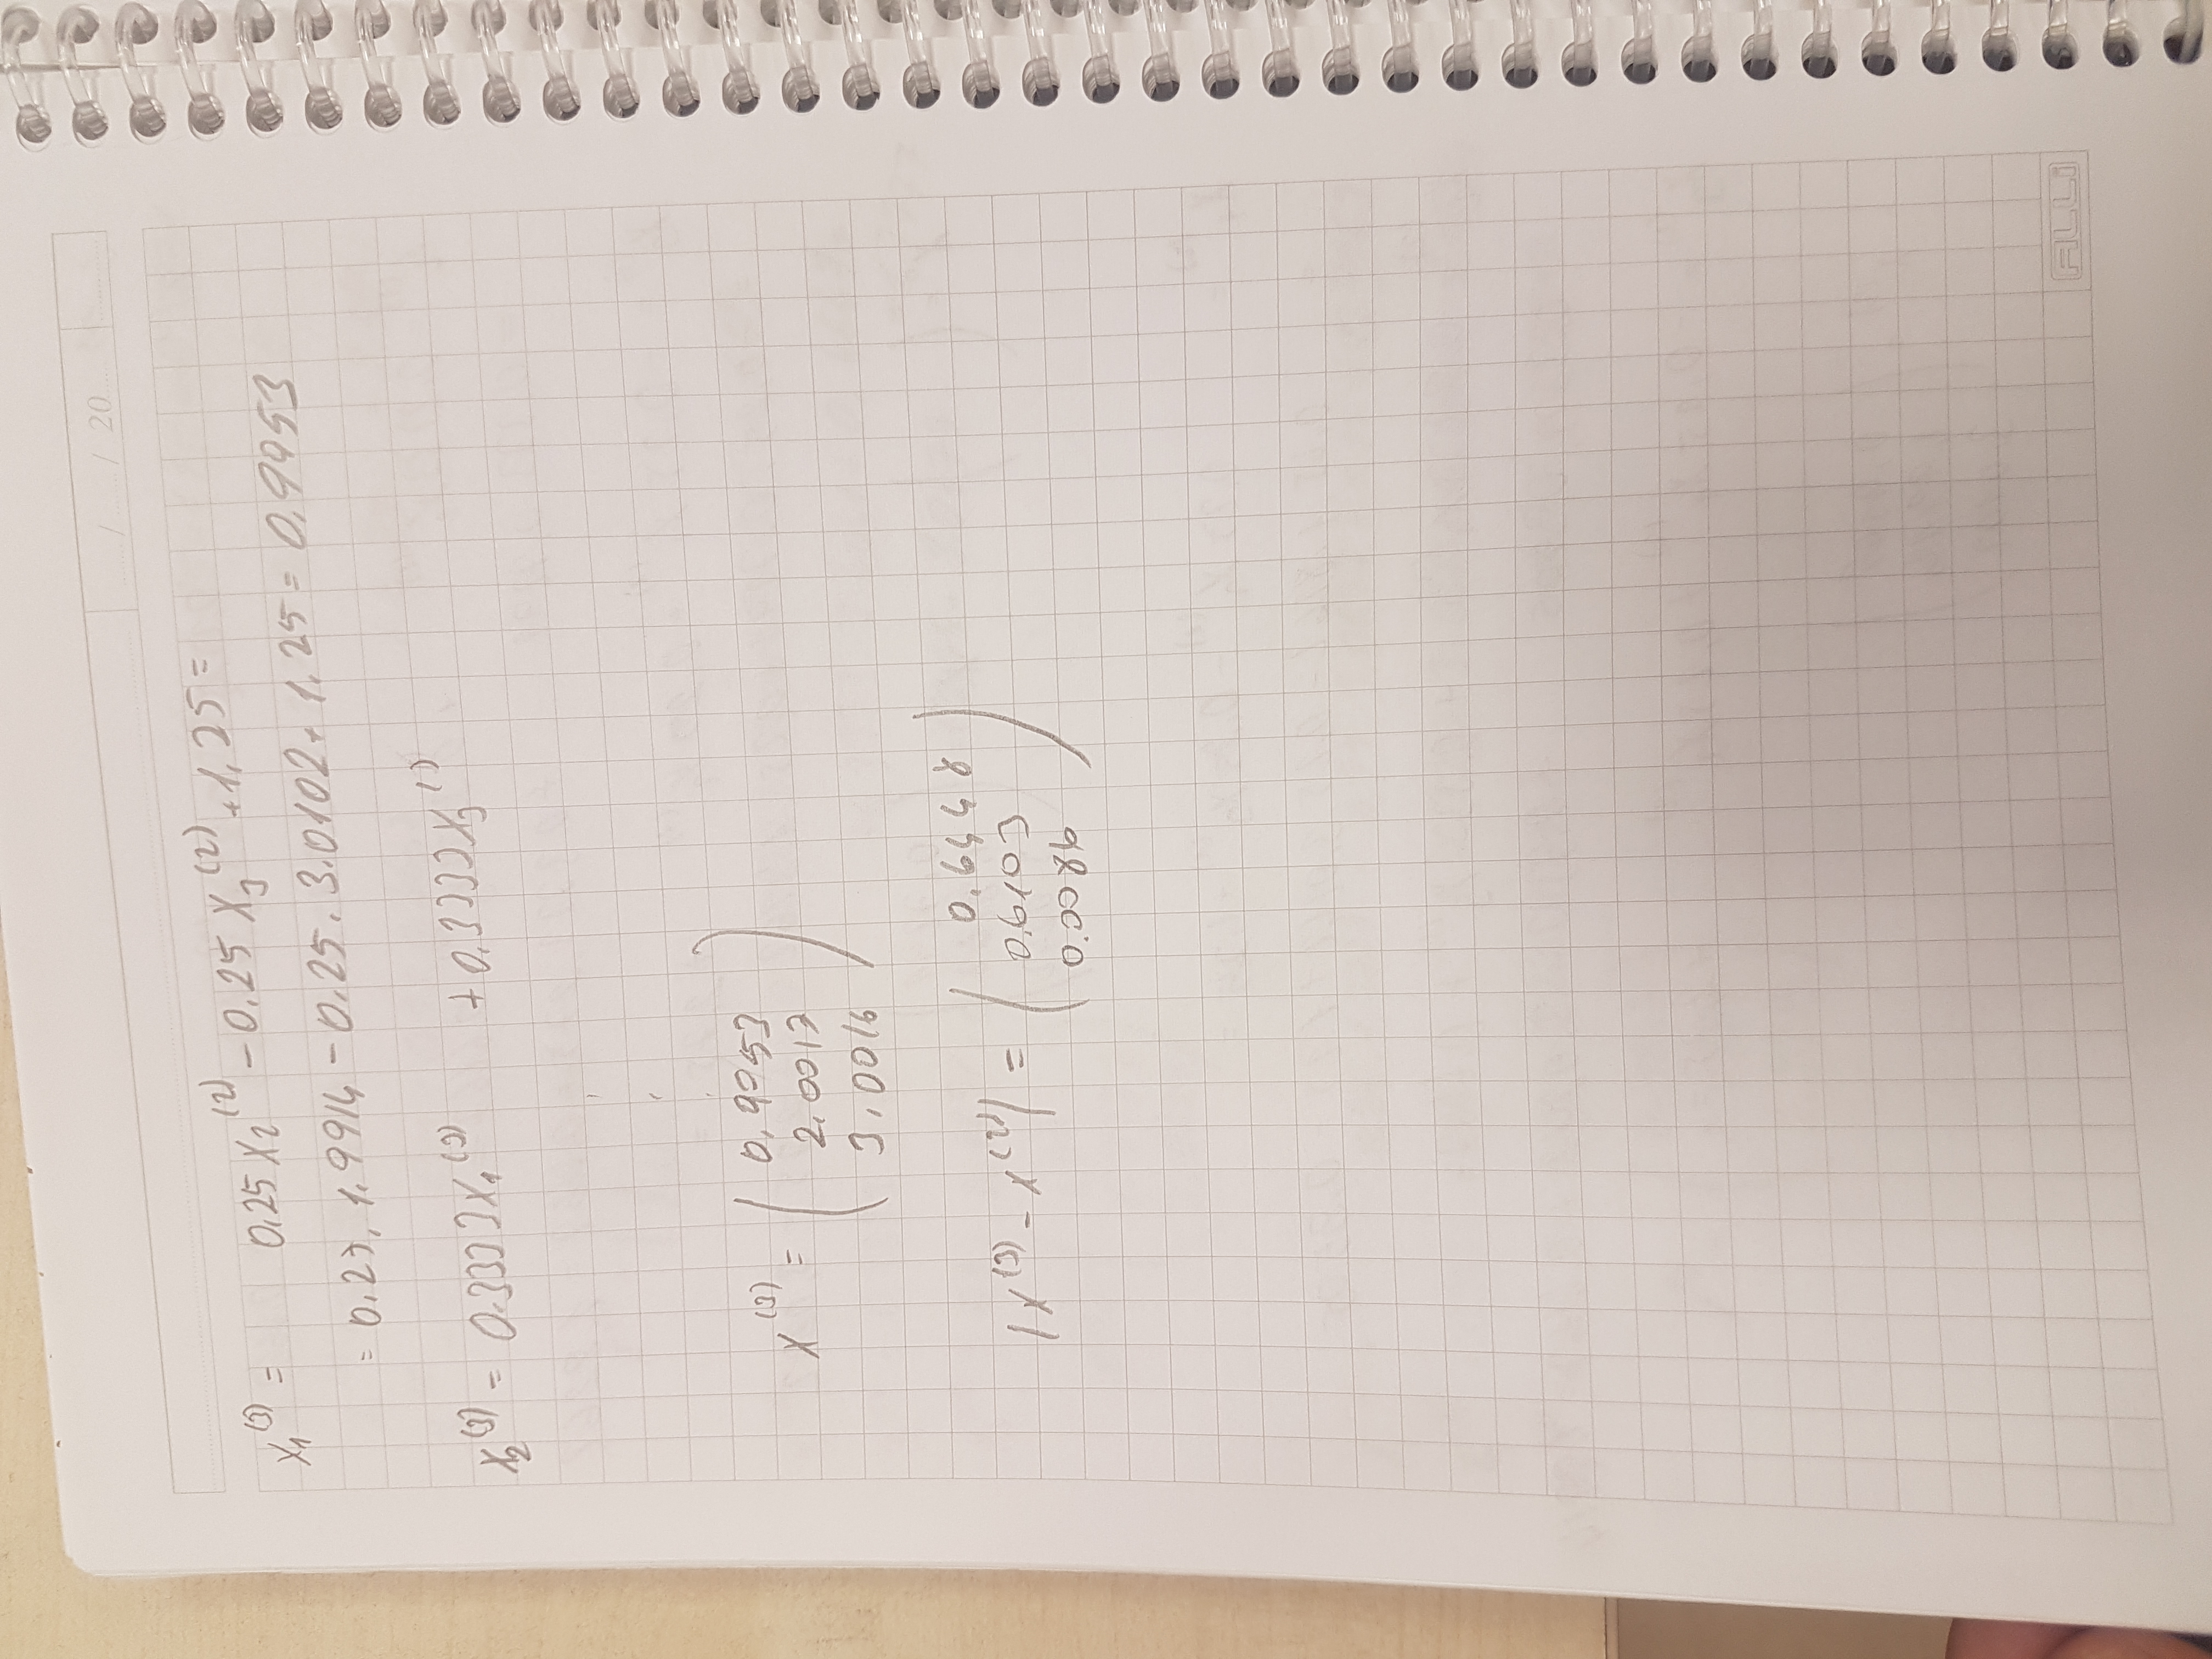 / / 20
x₁⁽³⁾ = 0.25x₂⁽²⁾ - 0.25x₃⁽²⁾ + 1.25 =
= 0.25. 1.9914 - 0.25. 3.0102 + 1.25 = 0.9953
x₂⁽³⁾ = 0.3333x₁⁽³⁾ + 0.3333x₃⁽⁾
x⁽³⁾ = ( 0.9953
2.0017
3.0016 )
|x⁽³⁾ - x⁽²⁾| = (
)
ALLi